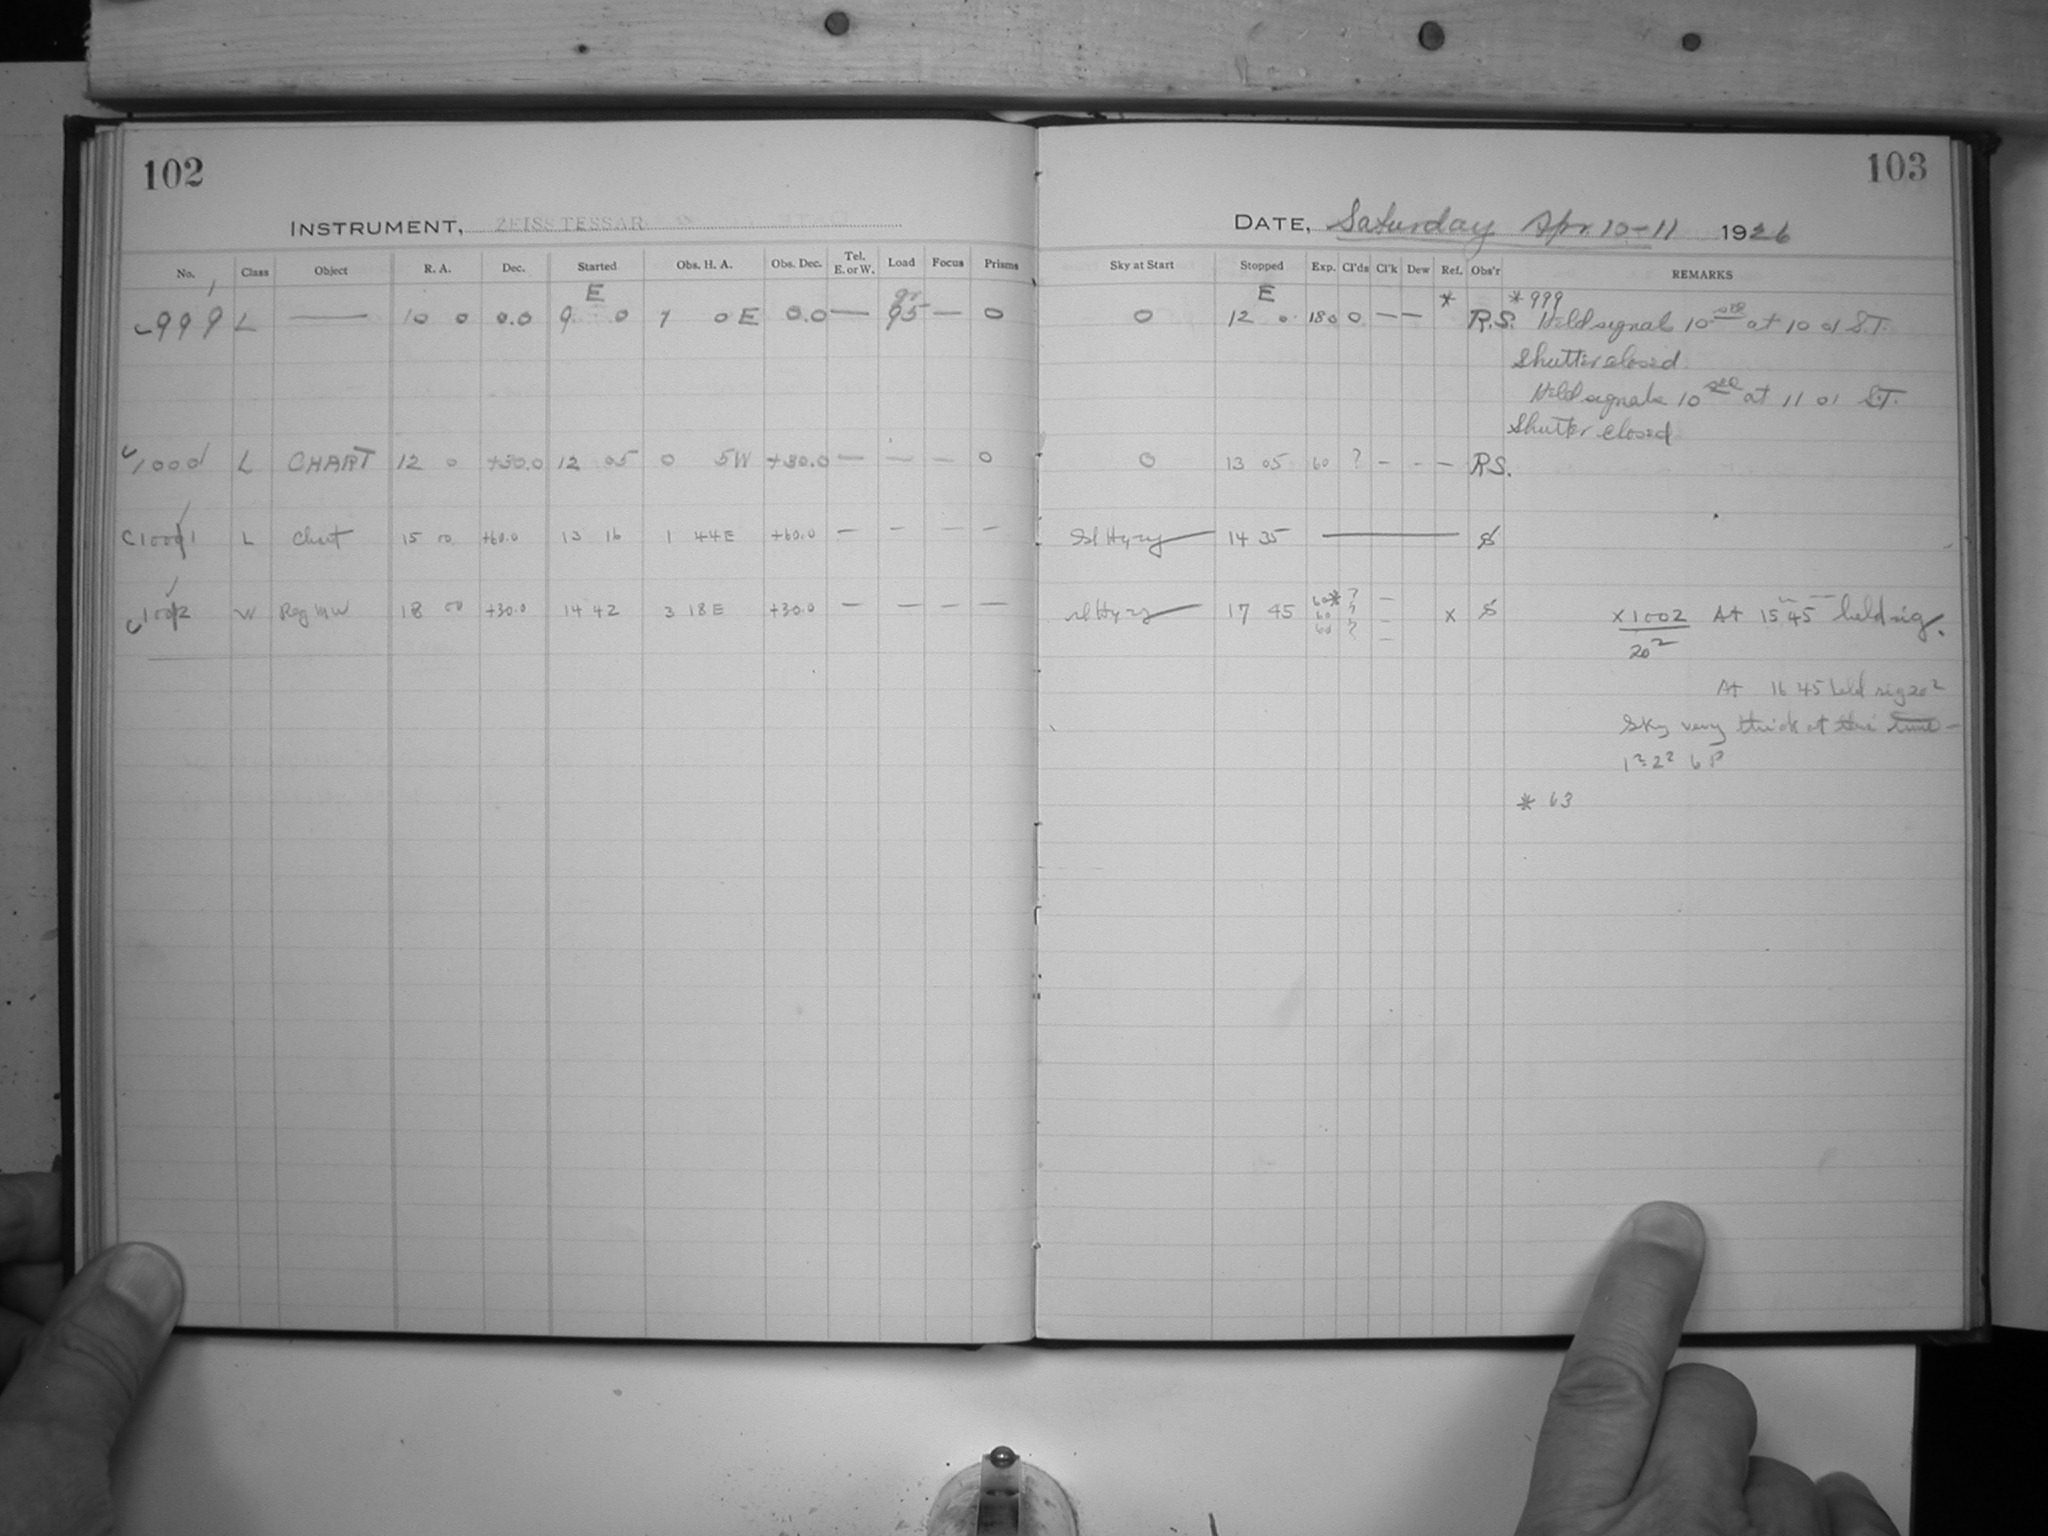 102
INSTRUMENT, ZEISS TESSAR
No. Class Object R. A. Dec. Started Obs. H. A. Obs. Dec. Tel. E. or W. Load Focus Prisms
999 L — 10 0 0.0 E 9 0 1 0 E 0.0 — 95 — 0
1000 L CHART 12 0 +30.0 12 05 0 5W +30.0 — — — 0
1001 L Chart 15 00 +60.0 13 16 1 44E +60.0 — — — —
1002 W Reg MW 18 00 +30.0 14 42 3 18E +30.0 — — — —
103
DATE, Saturday Apr. 10-11 1926
Sky at Start Stopped Exp. Cl'ds Cl'k Dew Ref. Obs'r REMARKS
0 E 12 0 180 0 — — * R.S. * 999
Held signal 10 sec at 10 01 S.T.
Shutter closed.
Held signal 10 sec at 11 01 S.T.
Shutter closed
0 13 05 60 ? - - — RS.
14 35 —
17 45 60* ? —
60 ? —
60 ? —
x x 1002 At 15 45 held sig.
20
At 16 45 held sig 20
Sky very thick at this time —
* 63